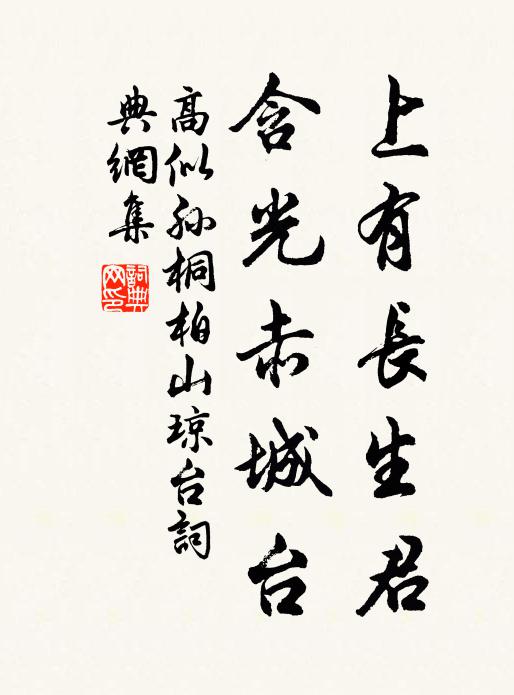 上有長生君
含光赤城台
高似孙桐柏山琼台詞
典網集
詞典网印